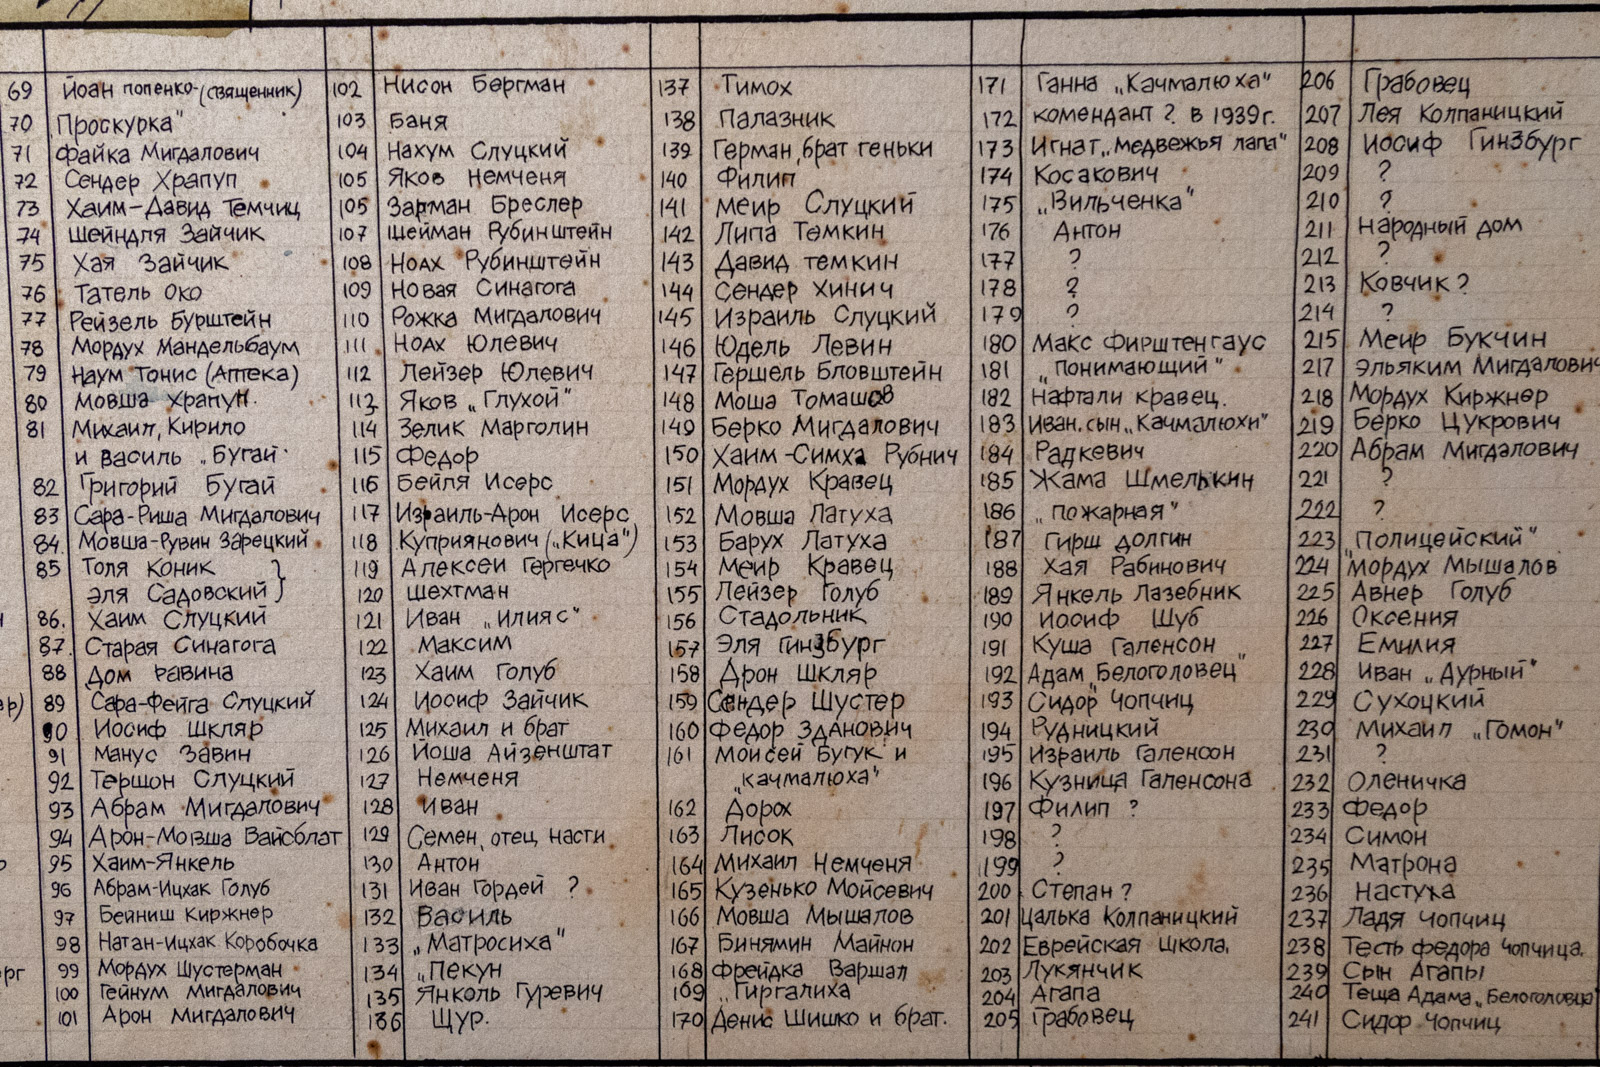 69 Йоан попенко-(священник)
70 „Проскурка"
71 Файка Мигдалович
72 Сендер Храпуп
73 Хаим-Давид Темчиц
74 Шейндля Зайчик
75 Хая Зайчик
76 Татель Око
77 Рейзель Бурштейн
78 Мордух Мандельбаум
79 Наум Тонис (Аптека)
80 Мовша Храпун.
81 Михаил, Кирило
и Василь „Бугай"
82 Григорий Бугай
83 Сара-Риша Мигдалович
84. Мовша-Рувин Зарецкий
85 Толя Коник }
эля Садовский
86. Хаим Слуцкий
87. Старая Синагога
88 Дом равина
89 Сара-Фейга Слуцкий
90 Иосиф Шкляр
91 Манус Завин
92 Гершон Слуцкий
93 Абрам Мигдалович
94 Арон-Мовша Вайсблат
95 Хаим-Янкель
96 Абрам-Ицхак Голуб
97 Бейниш Киржнер
98 Натан-Ицхак Коробочка
99 Мордух Шустерман
100 Гейнум Мигдалович
101 Арон Мигдалович
102 Нисон Бергман
103 Баня
104 Нахум Слуцкий
105 Яков Немченя
105 Зарман Бреслер
107 Шейман Рубинштейн
108 Ноах Рубинштейн
109 Новая Синагога
110 Рожка Мигдалович
111 Ноах Юлевич
112 Лейзер Юлевич
113 Яков „Глухой"
114 Зелик Марголин
115 Федор
116 Бейля Исерс
117 Израиль-Арон Исерс
118 Куприянович („Кица")
119 Алексей Гергечко
120 Шехтман
121 Иван „Илияс"
122 Максим
123 Хаим Голуб
124 Иосиф Зайчик
125 Михаил и брат
126 Йоша Айзенштат
127 Немченя
128 Иван
129 Семен, отец насти
130 Антон
131 Иван Гордей ?
132 Василь
133 „Матросиха"
134 „Пекун
135 Янколь Гуревич
136 Щур.
137 Тимох
138 Палазник
139 Герман, брат геньки
140 Филип
141 Меир Слуцкий
142 Липа Темкин
143 Давид Темкин
144 Сендер Хинич
145 Израиль Слуцкий
146 Юдель Левин
147 Гершель Бловштейн
148 Моша Томашов
149 Берко Мигдалович
150 Хаим-Симха Рубнич
151 Мордух Кравец
152 Мовша Латуха
153 Барух Латуха
154 Меир Кравец
155 Лейзер Голуб
156 Стадольник
157 Эля Гинзбург
158 Дрон Шкляр
159 Сендер Шустер
160 Федор Зданович
161 Моисей Бугук и
„качмалюха"
162 Дорох
163 Лисок
164 Михаил Немченя
165 Кузенько Мойсевич
166 Мовша Мышалов
167 Бинямин Майнон
168 Фрейдка Варшал
169 „Гиргалиха
170 Денис Шишко и брат.
171 Ганна „Качмалюха"
172 комендант ? в 1939г.
173 Игнат „медвежья лапа"
174 Косакович
175 „Вильченка"
176 Антон
177 ?
178 ?
179 ?
180 Макс Фирштенгаус
181 „понимающий"
182 Нафтали кравец.
183 Иван. сын „Качмалюхи"
184 Радкевич
185 Жама Шмелькин
186 „пожарная"
187 Гирш Долгин
188 Хая Рабинович
189 Янкель Лазебник
190 Иосиф Шуб
191 Куша Галенсон
192 Адам „Белоголовец"
193 Сидор Чопчиц
194 Рудницкий
195 Израиль Галенсон
196 Кузница Галенсона
197 Филип ?
198 ?
199 ?
200 Степан ?
201 Цалька Колпаницкий
202 Еврейская школа.
203 Лукянчик
204 Агапа
205 Грабовец
206 Грабовец
207 Лея Колпаницкий
208 Иосиф Гинзбург
209 ?
210 ?
211 Народный дом
212 ?
213 Ковчик ?
214 ?
215 Меир Букчин
217 Эльяким Мигдалович
218 Мордух Киржнер
219 Берко Цукрович
220 Абрам Мигдалович
221 ?
222 ?
223 „Полицейский"
224 Мордух Мышалов
225 Авнер Голуб
226 Оксения
227 Емилия
228 Иван „Дурный"
229 Сухоцкий
230 Михаил „Гомон"
231 ?
232 Оленичка
233 Федор
234 Симон
235 Матрона
236 Настуха
237 Ладя Чопчиц
238 Тесть федора Чопчица.
239 Сын Агапы
240 Теща Адама „Белоголовца"
241 Сидор Чопчиц